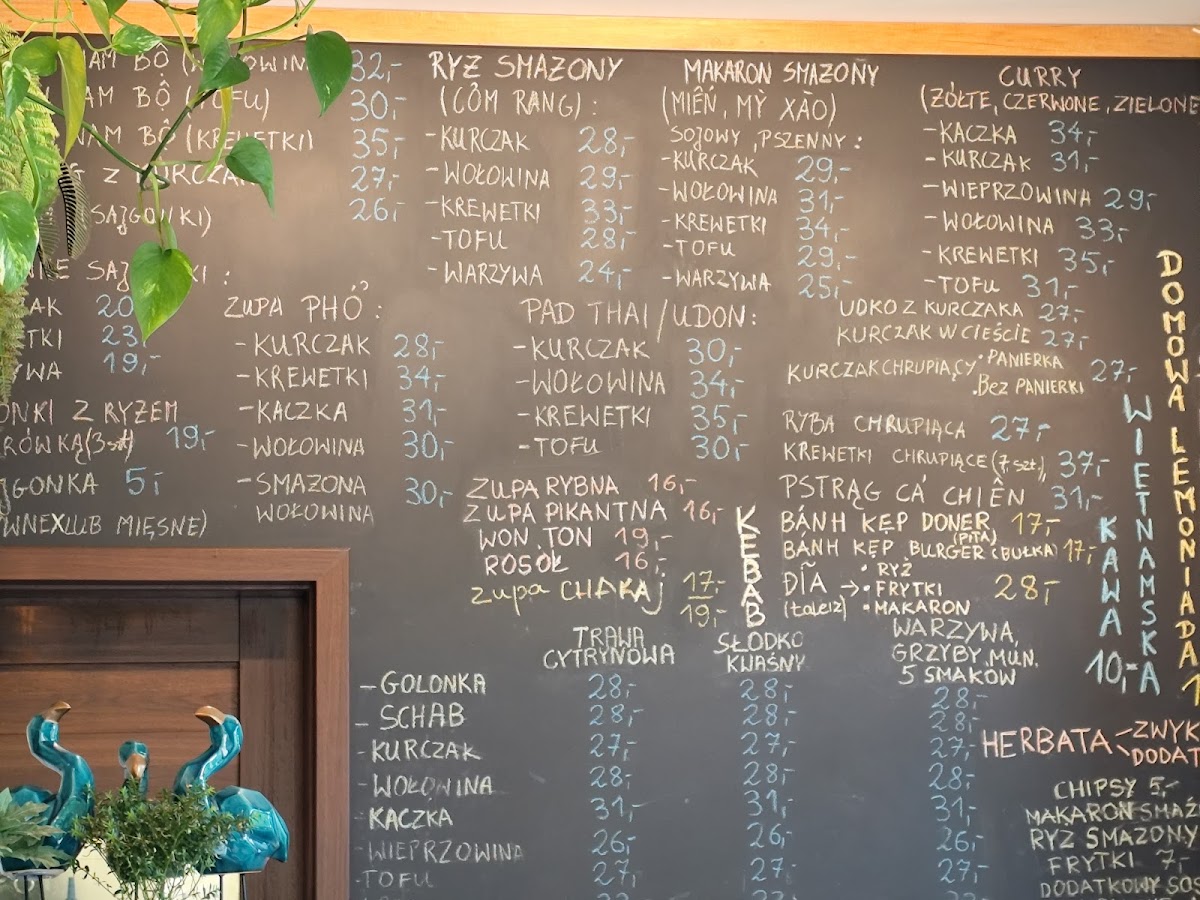 AM BÔ (WOŁOWIN 32,-
AM BÔ (TOFU) 30,-
AM BÔ (KREWETKI) 35,-
Z KURCZAK 27,-
SAJGONKI) 26,-
NIE SAJ KI :
AK 20
TKI 23
YWA 19,-
ONKI Z RYŻEM
RÓWKĄ (3 szt) 19,-
JGONKA 5,-
WNEX LUB MIĘSNE)
RYŻ SMAŻONY
(CƠM RANG) :
-KURCZAK 28,-
-WOŁOWINA 29,-
-KREWETKI 33,-
-TOFU 28,-
-WARZYWA 24,-
MAKARON SMAŻONY
(MIẾN, MỲ XÀO)
SOJOWY, PSZENNY :
-KURCZAK 29,-
-WOŁOWINA 31,-
-KREWETKI 34,-
-TOFU 29,-
-WARZYWA 25,-
CURRY
(ŻÓŁTE, CZERWONE, ZIELONE
-KACZKA 34,-
-KURCZAK 31,-
-WIEPRZOWINA 29,-
-WOŁOWINA 33,-
-KREWETKI 35,-
-TOFU 31,-
ZUPA PHỞ :
-KURCZAK 28,-
-KREWETKI 34,-
-KACZKA 31,-
-WOŁOWINA 30,-
-SMAŻONA 30,-
WOŁOWINA
PAD THAI / UDON :
-KURCZAK 30,-
-WOŁOWINA 34,-
-KREWETKI 35,-
-TOFU 30,-
UDKO Z KURCZAKA 27,-
KURCZAK W CIEŚCIE 27,-
KURCZAK CHRUPIĄCY • PANIERKA 27,-
• BEZ PANIERKI
RYBA CHRUPIĄCA 27,-
KREWETKI CHRUPIĄCE (7 szt), 37,-
PSTRĄG CÁ CHIÊN 31,-
ZUPA RYBNA 16,-
ZUPA PIKANTNA 16,-
WON TON 19,-
ROSÓŁ 16,-
zupa CHAKAJ 17,-
19,-
KEBAB
BÁNH KẸP DONER 17,-
(PITA)
BÁNH KẸP BURGER (BUŁKA) 17,-
DĨA → • RYŻ
(talerz) • FRYTKI 28,-
• MAKARON
KAWA
WIETNAMSKA
10,-
DOMOWA LEMONIADA 1
TRAWA CYTRYNOWA
SŁODKO KWAŚNY
WARZYWA,
GRZYBY MUN,
5 SMAKÓW
-GOLONKA 28,- 28,- 28,-
-SCHAB 28,- 28,- 28,-
-KURCZAK 27,- 27,- 27,-
-WOŁOWINA 28,- 28,- 28,-
-KACZKA 31,- 31,- 31,-
-WIEPRZOWINA 26,- 26,- 26,-
-TOFU 27,- 27,- 27,-
HERBATA ZWYK
DODAT
CHIPSY 5,-
MAKARON SMAŻ
RYŻ SMAŻONY
FRYTKI 7,-
DODATKOWY SOS